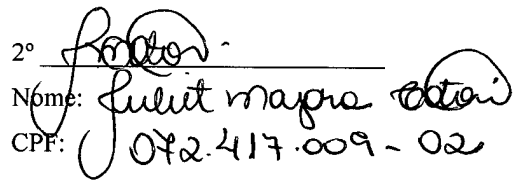 2º
Nome: Juliet mayara
CPF: 072.417.009-02